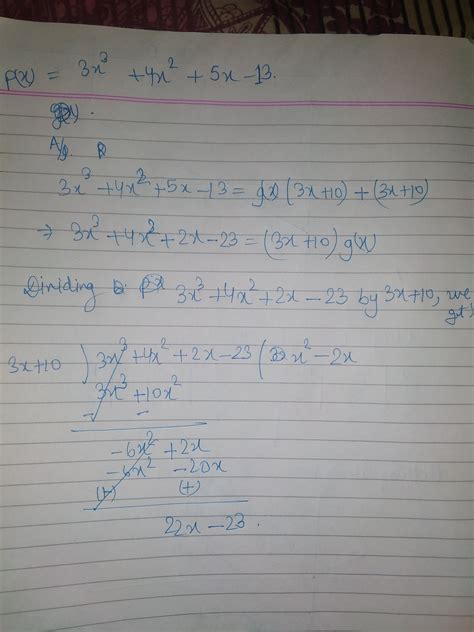 P(x) = 3x³ + 4x² + 5x - 13.
g(x).
A/q.
3x³ + 4x² + 5x - 13 = g(x) (3x+10) + (3x+10)
⇒ 3x³ + 4x² + 2x - 23 = (3x+10) g(x)
Dividing 3x³ + 4x² + 2x - 23 by 3x+10, we get!
3x+10 ) 3x³ + 4x² + 2x - 23 ( x² - 2x
3x³ + 10x²
- -
-6x² + 2x
-6x² - 20x
(+) (+)
22x - 23.